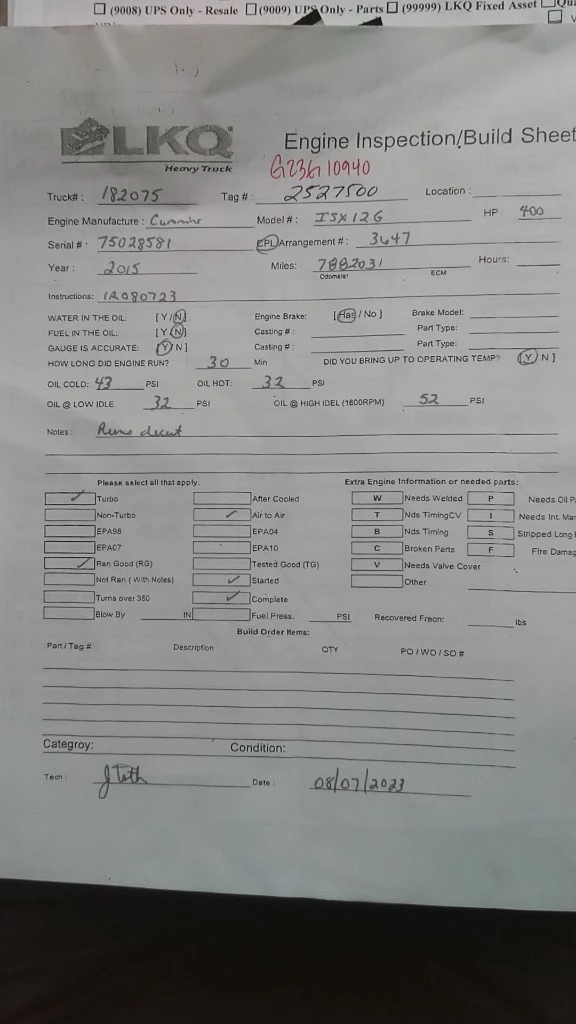 ☐ (9008) UPS Only - Resale ☐ (9009) UPS Only - Parts ☐ (99999) LKQ Fixed Asset
LKQ
Heavy Truck
Engine Inspection/Build Sheet
G23G10940
Truck#: 182075 Tag #: 2527500 Location:
Engine Manufacture: Cummins Model #: ISX12G HP 400
Serial #: 75028581 CPL/Arrangement #: 3647
Year: 2015 Miles: 7882031 Hours:
Odometer ECM
Instructions: IR080723
WATER IN THE OIL: [Y/N] Engine Brake: [Has / No] Brake Model:
FUEL IN THE OIL: [Y/N] Casting #: Part Type:
GAUGE IS ACCURATE: [Y/N] Casting #: Part Type:
HOW LONG DID ENGINE RUN? 30 Min DID YOU BRING UP TO OPERATING TEMP? [Y/N]
OIL COLD: 43 PSI OIL HOT: 32 PSI
OIL @ LOW IDLE 32 PSI OIL @ HIGH IDEL (1600RPM) 52 PSI
Notes: Runs decent
Please select all that apply. Extra Engine Information or needed parts:
✓ Turbo After Cooled W Needs Welded P Needs Oil
Non-Turbo ✓ Air to Air T Nds TimingCV I Needs Int.
EPA98 EPA04 B Nds Timing S Stripped Long
EPA07 EPA10 C Broken Parts F Fire
✓ Ran Good (RG) Tested Good (TG) V Needs Valve Cover
Not Ran (With Notes) ✓ Started Other
Turns over 360 ✓ Complete
Blow By IN Fuel Press. PSI Recovered Freon: lbs
Build Order Items:
Part/Tag # Description QTY PO / WO / SO #
Categroy: Condition:
Tech: J Toth Date: 08/07/2023